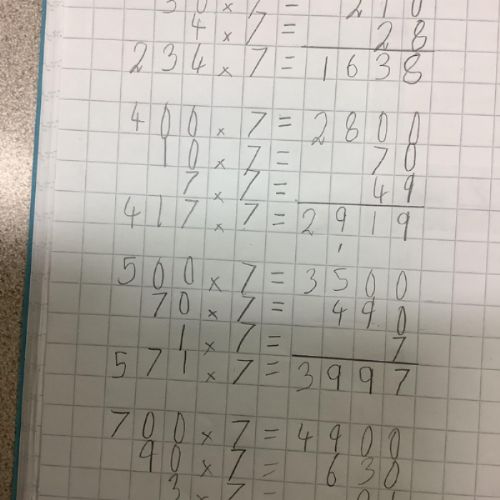 30 × 7 = 210
4 × 7 = 28
234 × 7 = 1638
400 × 7 = 2800
10 × 7 = 70
7 × 7 = 49
417 × 7 = 2919
1
500 × 7 = 3500
70 × 7 = 490
1 × 7 = 7
571 × 7 = 3997
700 × 7 = 4900
90 × 7 = 630
3 × 7 =